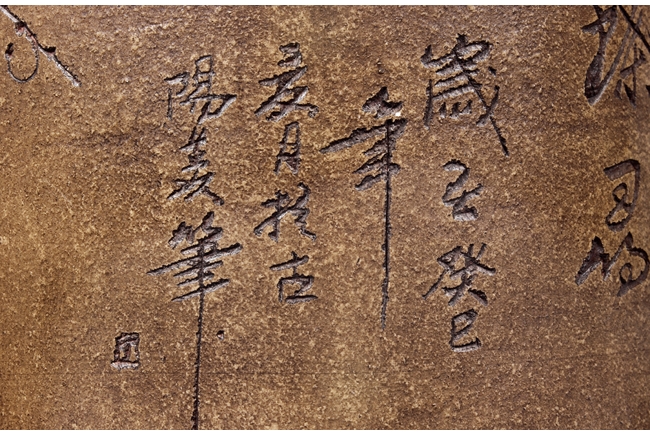 歲在癸巳
年
亥月於古
陽羨筆